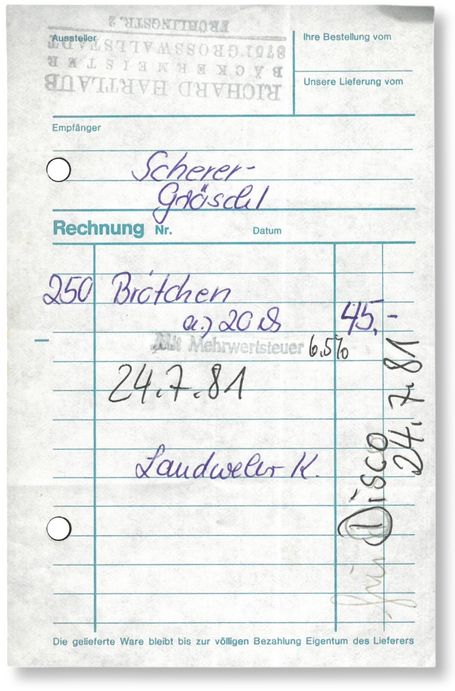 Aussteller
RICHARD HARTLAUB
BÄCKERMEISTER
8751 GROSSWALLSTADT
FRÜHLINGSTR. 2
Ihre Bestellung vom
Unsere Lieferung vom
Empfänger
Scherer-
Gröschl
Rechnung Nr. Datum
250 Brötchen
a) 20 45,-
Mit Mehrwertsteuer 6.5%
24.7.81
Landwehr K.
für Disco
24.7.81
Die gelieferte Ware bleibt bis zur völligen Bezahlung Eigentum des Lieferers